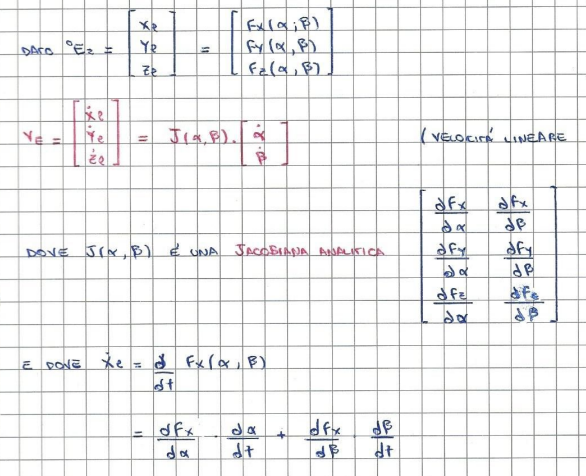 DATO ⁰E₂ = [x₂ y₂ z₂] = [Fx(α;β) Fy(α,β) Fz(α,β)]
VE = [ẋ₂ ẏ₂ ż₂] = J(α,β).[α̇ β̇] (VELOCITÁ LINEARE
DOVE J(α,β) É UNA JACOBIANA ANALITICA [dFx/dα dFx/dβ dFy/dα dFy/dβ dFz/dα dFz/dβ]
E DOVE ẋ₂ = d/dt Fx(α,β)
= dFx/dα · dα/dt + dFx/dβ · dβ/dt